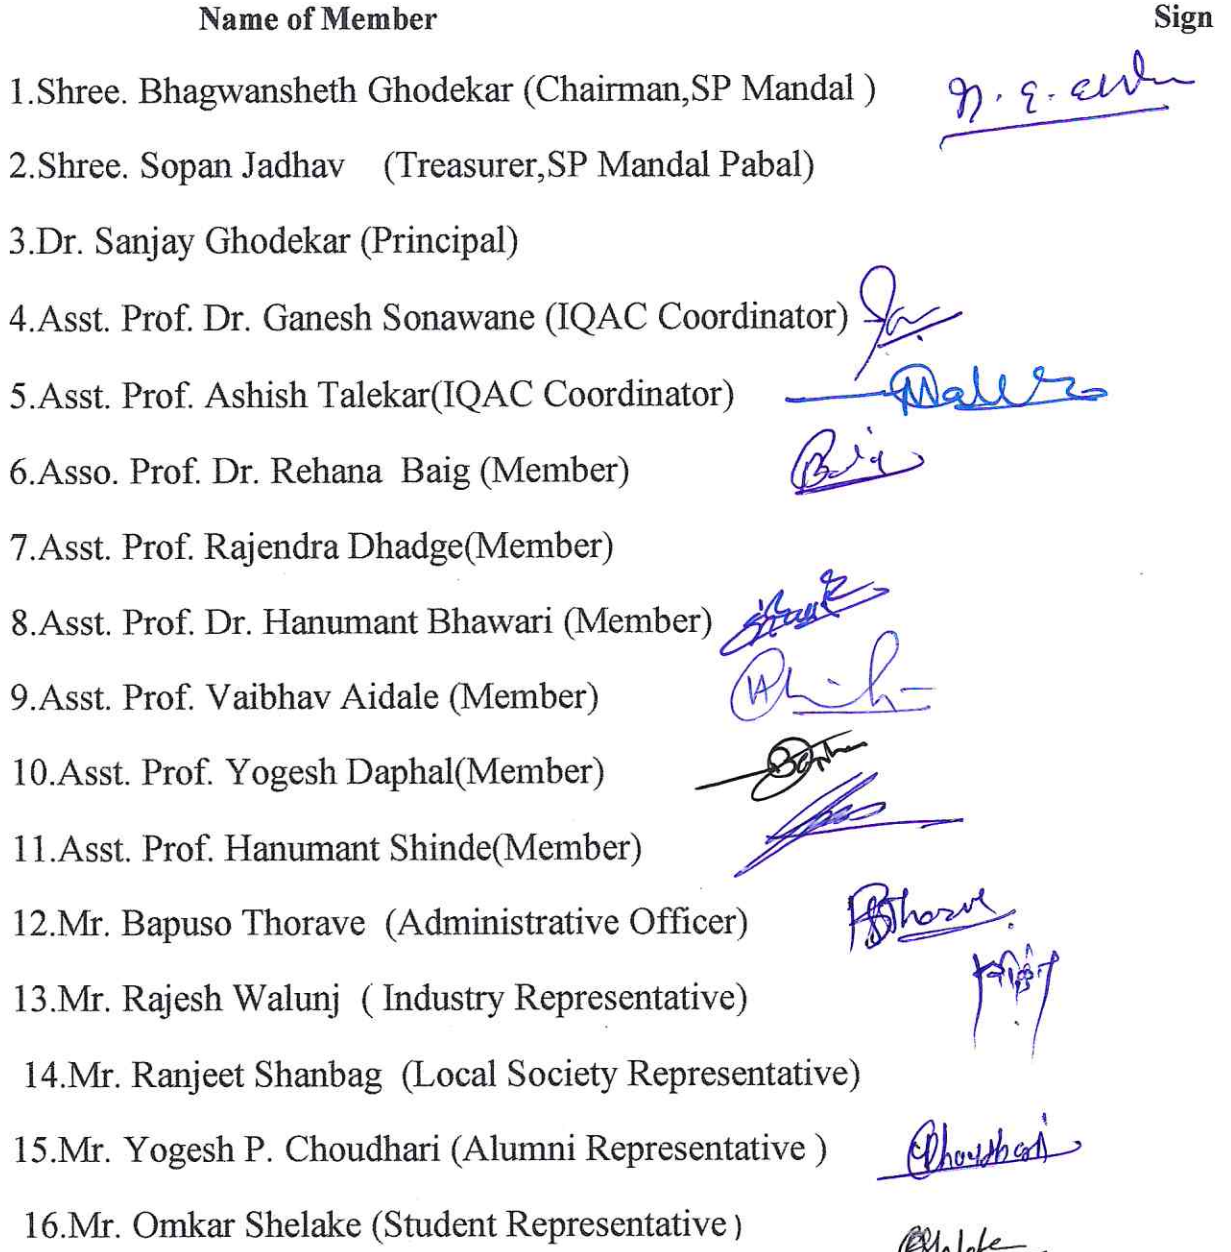 Name of Member Sign
1.Shree. Bhagwansheth Ghodekar (Chairman,SP Mandal )
2.Shree. Sopan Jadhav (Treasurer,SP Mandal Pabal)
3.Dr. Sanjay Ghodekar (Principal)
4.Asst. Prof. Dr. Ganesh Sonawane (IQAC Coordinator)
5.Asst. Prof. Ashish Talekar(IQAC Coordinator)
6.Asso. Prof. Dr. Rehana Baig (Member) Baig
7.Asst. Prof. Rajendra Dhadge(Member)
8.Asst. Prof. Dr. Hanumant Bhawari (Member)
9.Asst. Prof. Vaibhav Aidale (Member)
10.Asst. Prof. Yogesh Daphal(Member)
11.Asst. Prof. Hanumant Shinde(Member)
12.Mr. Bapuso Thorave (Administrative Officer)
13.Mr. Rajesh Walunj ( Industry Representative)
14.Mr. Ranjeet Shanbag (Local Society Representative)
15.Mr. Yogesh P. Choudhari (Alumni Representative )
16.Mr. Omkar Shelake (Student Representative)